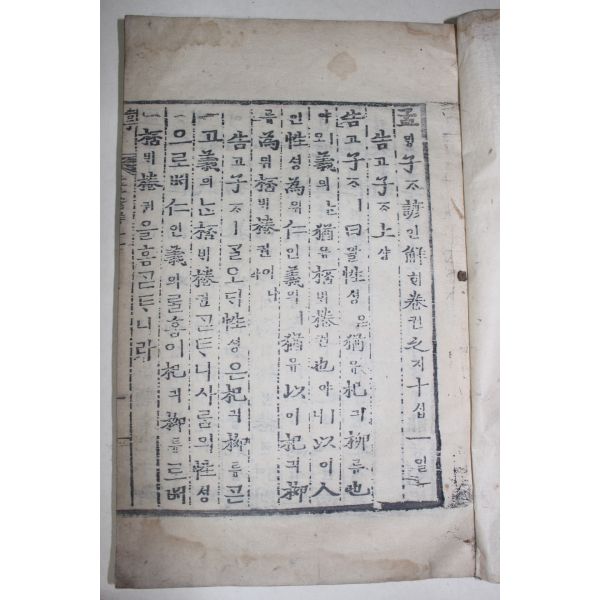 孟ᄆᆡᆼ子ᄌᆞ諺언解ᄒᆡ卷권之지十십一일
告고子ᄌᆞ上샹
告고子ᄌᆞㅣ曰왈性셩은猶유杞긔柳류也
야오義의ᄂᆞᆫ猶유桮ᄇᆡ棬권也야ㅣ니以이人
인性셩爲위仁인義의ㅣ猶유以이杞긔柳
류爲위桮ᄇᆡ棬권이니라
告고子ᄌᆞㅣᄀᆞᆯ오ᄃᆡ性셩은杞긔柳류ᄀᆞᆮ
고義의ᄂᆞᆫ桮ᄇᆡ棬권ᄀᆞᆮᄐᆞ니사ᄅᆞᆷ의性셩
으로ᄡᅥ仁인義의ᄅᆞᆯ홈이杞긔柳류로ᄡᅥ
桮ᄇᆡ棬권을홈ᄀᆞᆮᄐᆞ니라